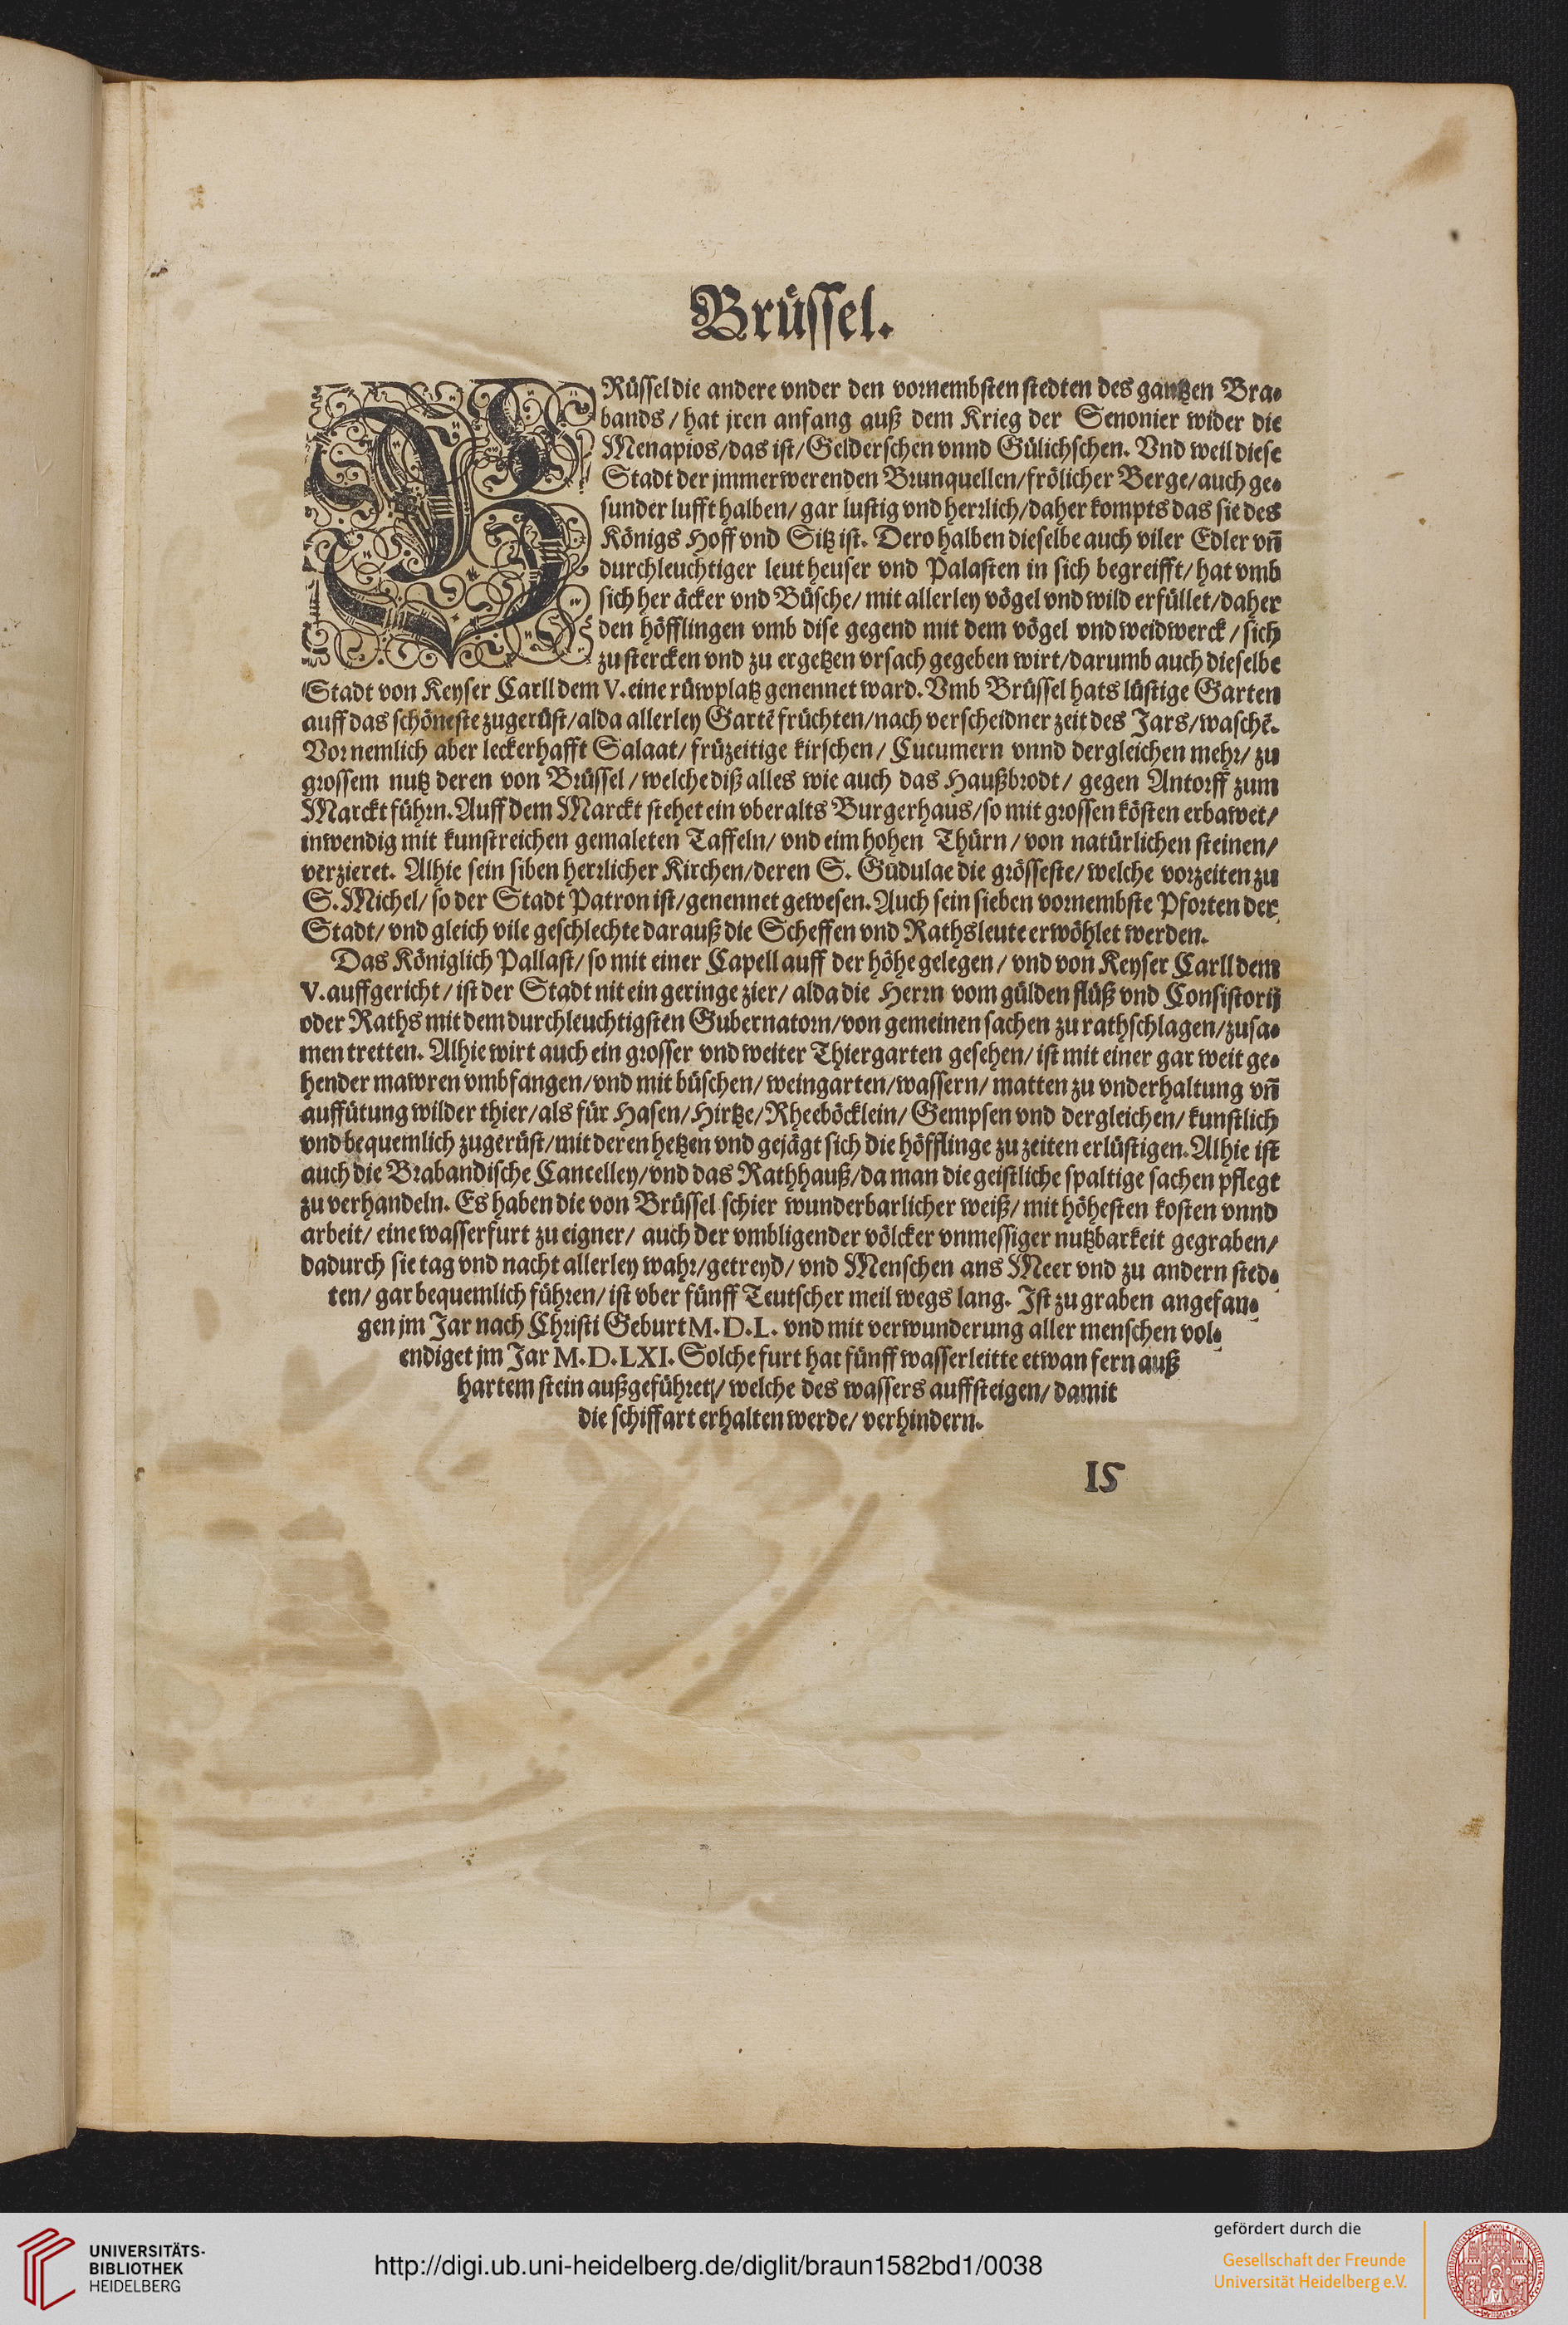 Brüssel.
BRüssel die andere vnder den vornembsten stedten des gantzen Bra-
bands / hat jren anfang auß dem Krieg der Senonier wider die
Menapios/das ist/Gelderschen vnnd Gülichschen. Vnd weil diese
Stadt der jmmerwerenden Brunquellen/frölicher Berge/auch ge-
sunder lufft halben/ gar lustig vnd herrlich/daher kompts das sie des
Königs Hoff vnd Sitz ist. Dero halben dieselbe auch viler Edler vñ
durchleuchtiger leut heuser vnd Palasten in sich begreifft/ hat vmb
sich her äcker vnd Büsche/ mit allerley vögel vnd wild erfüllet/daher
den höfflingen vmb dise gegend mit dem vögel vnd weidwerck / sich
zu stercken vnd zu ergetzen vrsach gegeben wirt/darumb auch dieselbe
Stadt von Keyser Carll dem V. eine rüwplatz genennet ward. Vmb Brüssel hats lüstige Garten
auff das schöneste zugerüst/alda allerley Gartẽ früchten/nach verscheidner zeit des Jars/waschẽ.
Vornemlich aber leckerhafft Salaat/ früzeitige kirschen/ Cucumern vnnd dergleichen mehr/ zu
grossem nutz deren von Brüssel / welche diß alles wie auch das Haußbrodt / gegen Antorff zum
Marckt führn. Auff dem Marckt stehet ein vberalts Burgerhaus/so mit grossen kösten erbawet/
inwendig mit kunstreichen gemaleten Taffeln/ vnd eim hohen Thürn / von natürlichen steinen/
verzieret. Alhie sein siben herrlicher Kirchen/deren S. Gudulae die grösseste/ welche vorzeiten zu
S. Michel/ so der Stadt Patron ist/genennet gewesen. Auch sein sieben vornembste Pforten der
Stadt/ vnd gleich vile geschlechte darauß die Scheffen vnd Rathsleute erwöhlet werden.
Das Königlich Pallast/ so mit einer Capell auff der höhe gelegen / vnd von Keyser Carll dem
V. auffgericht / ist der Stadt nit ein geringe zier/ alda die Herrn vom gülden flüß vnd Consistorij
oder Raths mit dem durchleuchtigsten Gubernatorn/von gemeinen sachen zu rathschlagen/zusa-
men tretten. Alhie wirt auch ein grosser vnd weiter Thiergarten gesehen/ ist mit einer gar weit ge-
hender mawren vmbfangen/vnd mit büschen/ weingarten/wassern/ matten zu vnderhaltung vñ
auffütung wilder thier/als für Hasen/Hirtze/Rheeböcklein/ Gempsen vnd dergleichen/ kunstlich
vnd bequemlich zugerüst/mit deren hetzen vnd gejägt sich die höfflinge zu zeiten erlüstigen. Alhie ist
auch die Brabandische Cancelley/vnd das Rathhauß/da man die geistliche spaltige sachen pflegt
zu verhandeln. Es haben die von Brüssel schier wunderbarlicher weiß/ mit höhesten kosten vnnd
arbeit/ eine wasserfurt zu eigner/ auch der vmbligender völcker vnmessiger nutzbarkeit gegraben/
dadurch sie tag vnd nacht allerley wahr/getreyd/ vnd Menschen ans Meer vnd zu andern sted-
ten/ gar bequemlich führen/ ist vber fünff Teutscher meil wegs lang. Ist zu graben angefan-
gen jm Jar nach Christi Geburt M.D.L. vnd mit verwunderung aller menschen vol-
endiget jm Jar M.D.LXI. Solche furt hat fünff wasserleitte etwan fern auß
hartem stein außgeführet/ welche des wassers auffsteigen/ damit
die schiffart erhalten werde/ verhindern.
15
UNIVERSITÄTS-
BIBLIOTHEK
HEIDELBERG
http://digi.ub.uni-heidelberg.de/diglit/braun1582bd1/0038
gefördert durch die
Gesellschaft der Freunde
Universität Heidelberg e.V.